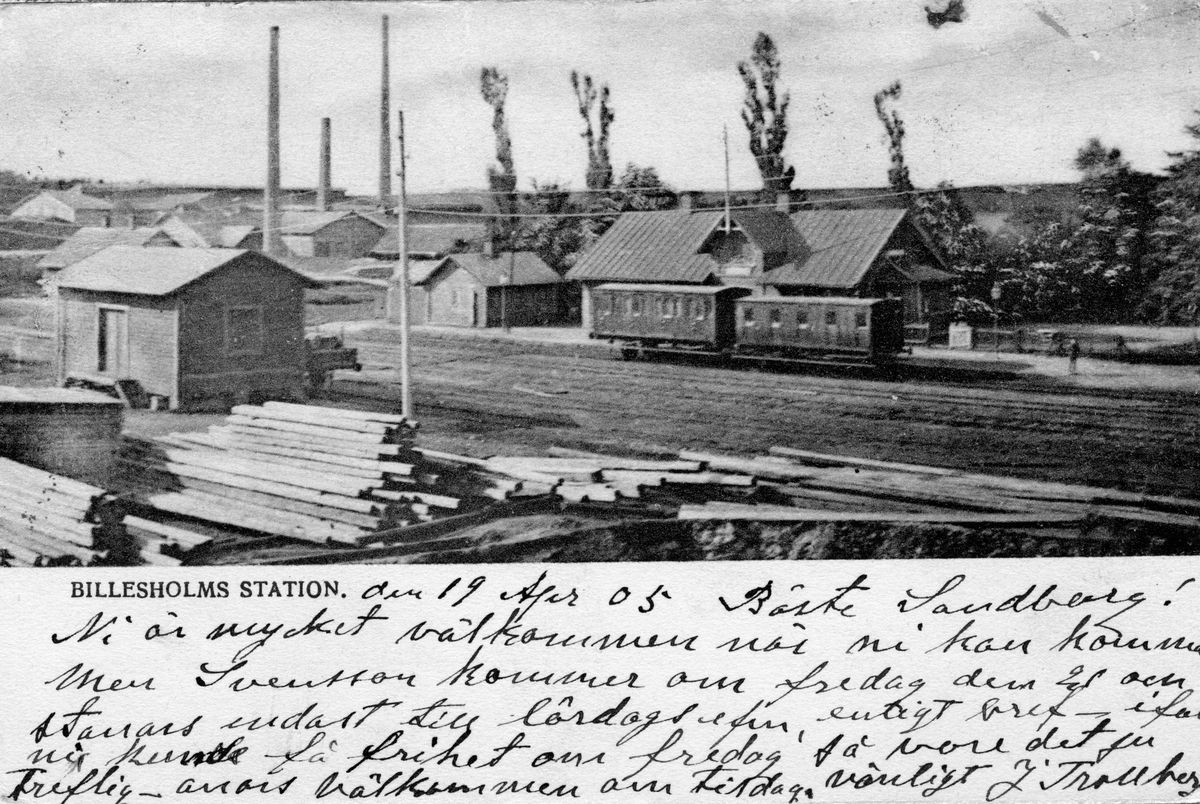 BILLESHOLMS STATION. den 19 Apr 05 Bäste Sandberg!
Ni är mycket välkommen när ni kan komma
Men Svensson kommer om fredag den 21 och
stanars endast till lördags efm, entigt bref – ifall
ni kunde få frihet om fredag så vore det ju
treflig – anars välkommen om tisdag. vänligt J Trollberg